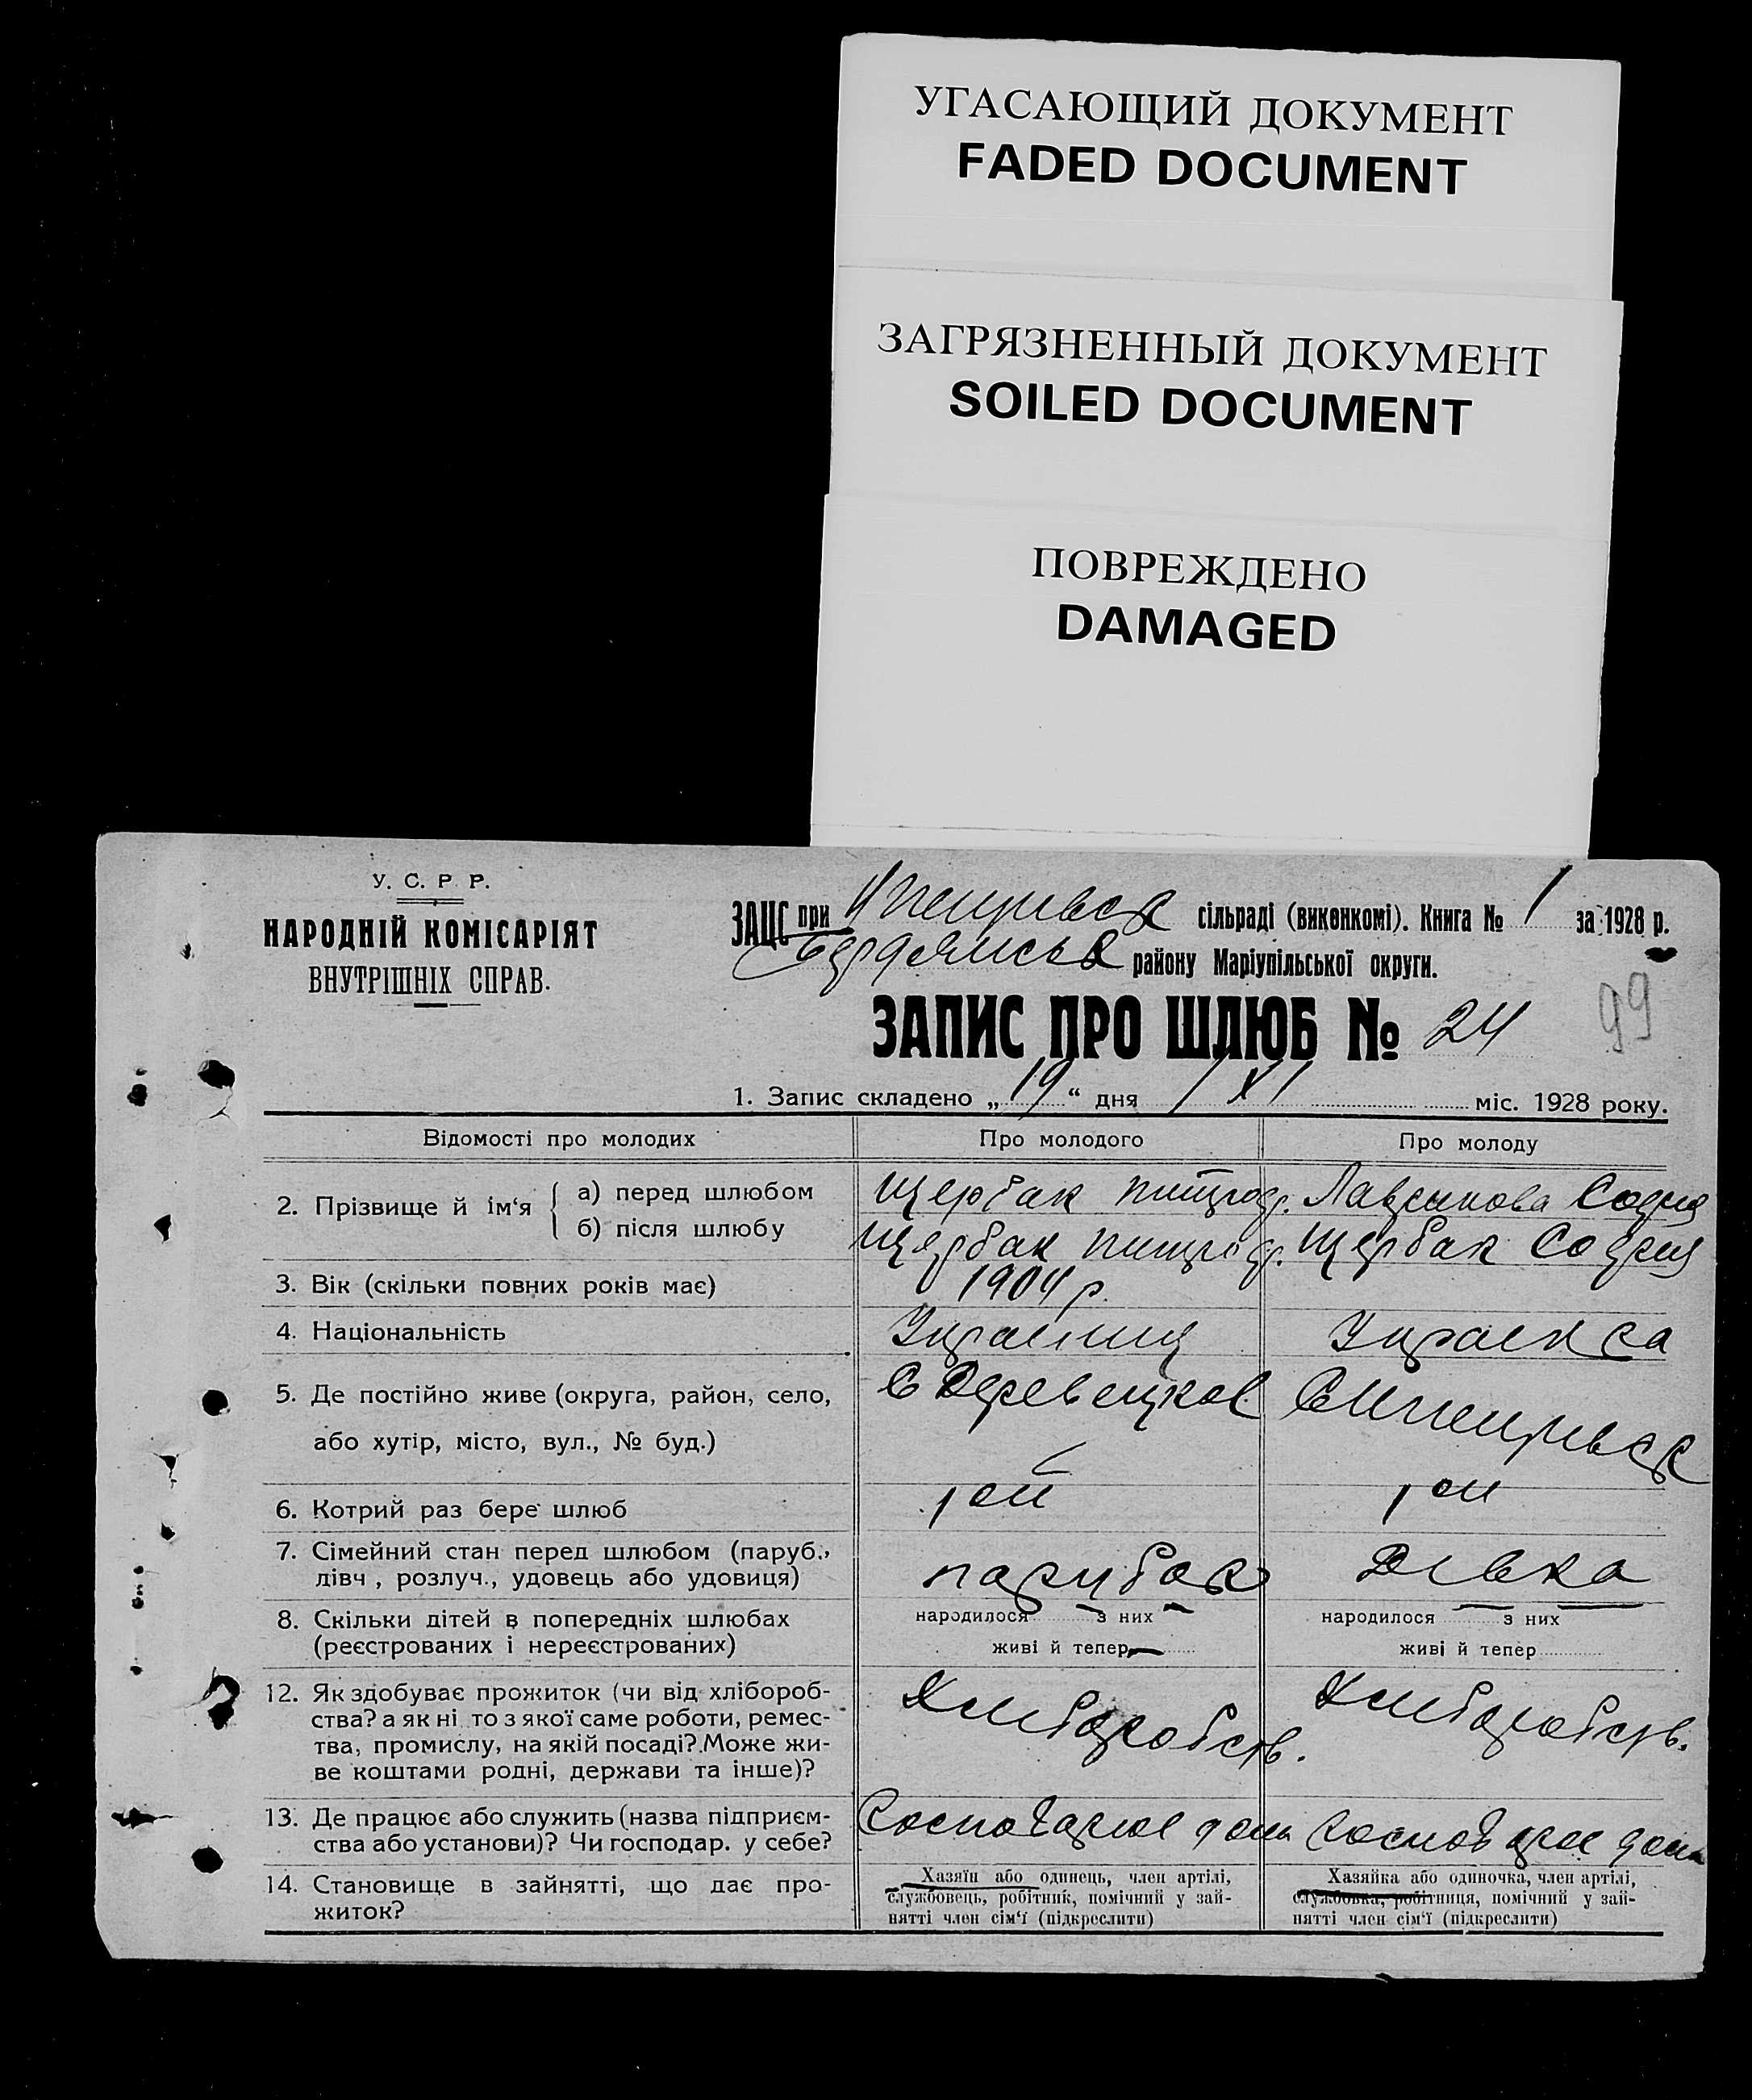 УГАСАЮЩИЙ ДОКУМЕНТ
FADED DOCUMENT
ЗАГРЯЗНЕННЫЙ ДОКУМЕНТ
SOILED DOCUMENT
ПОВРЕЖДЕНО
DAMAGED
У. С. Р. Р.
НАРОДНІЙ КОМІСАРІЯТ
ВНУТРІШНІХ СПРАВ.
ЗАЦС при сільраді (виконкомі). Книга № 1 за 1928 р.
району Маріупільської округи.
99
ЗАПИС ПРО ШЛЮБ № 24
1. Запис складено „19“ дня / XI міс. 1928 року.
Відомості про молодих Про молодого Про молоду
2. Прізвище й ім‘я
а) перед шлюбом Щербак
б) після шлюбу Щербак Щербак
3. Вік (скільки повних років має) 1904 р.
4. Національність
5. Де постійно живе (округа, район, село,
або хутір, місто, вул., № буд.)
6. Котрий раз бере шлюб 1 ой 1 ой
7. Сімейний стан перед шлюбом (паруб.,
дівч , розлуч., удовець або удовиця) парубок Дівка
8. Скільки дітей в попередніх шлюбах
(реєстрованих і нереєстрованих)
народилося з них
живі й тепер
народилося з них
живі й тепер
12. Як здобуває прожиток (чи від хлібороб-
ства? а як ні то з якої саме роботи, ремес-
тва, промислу, на якій посаді? Може жи-
ве коштами родні, держави та інше)?
Хліборобств.
Хліборобств.
13. Де працює або служить (назва підприєм-
ства або установи)? Чи господар. у себе?
14. Становище в зайнятті, що дає про-
житок?
Хазяїн або одинець, член артілі,
службовець, робітник, помічний у зай-
нятті член сім‘ї (підкреслити)
Хазяйка або одиночка, член артілі,
службовка, робітниця, помічний у зай-
нятті член сім‘ї (підкреслити)